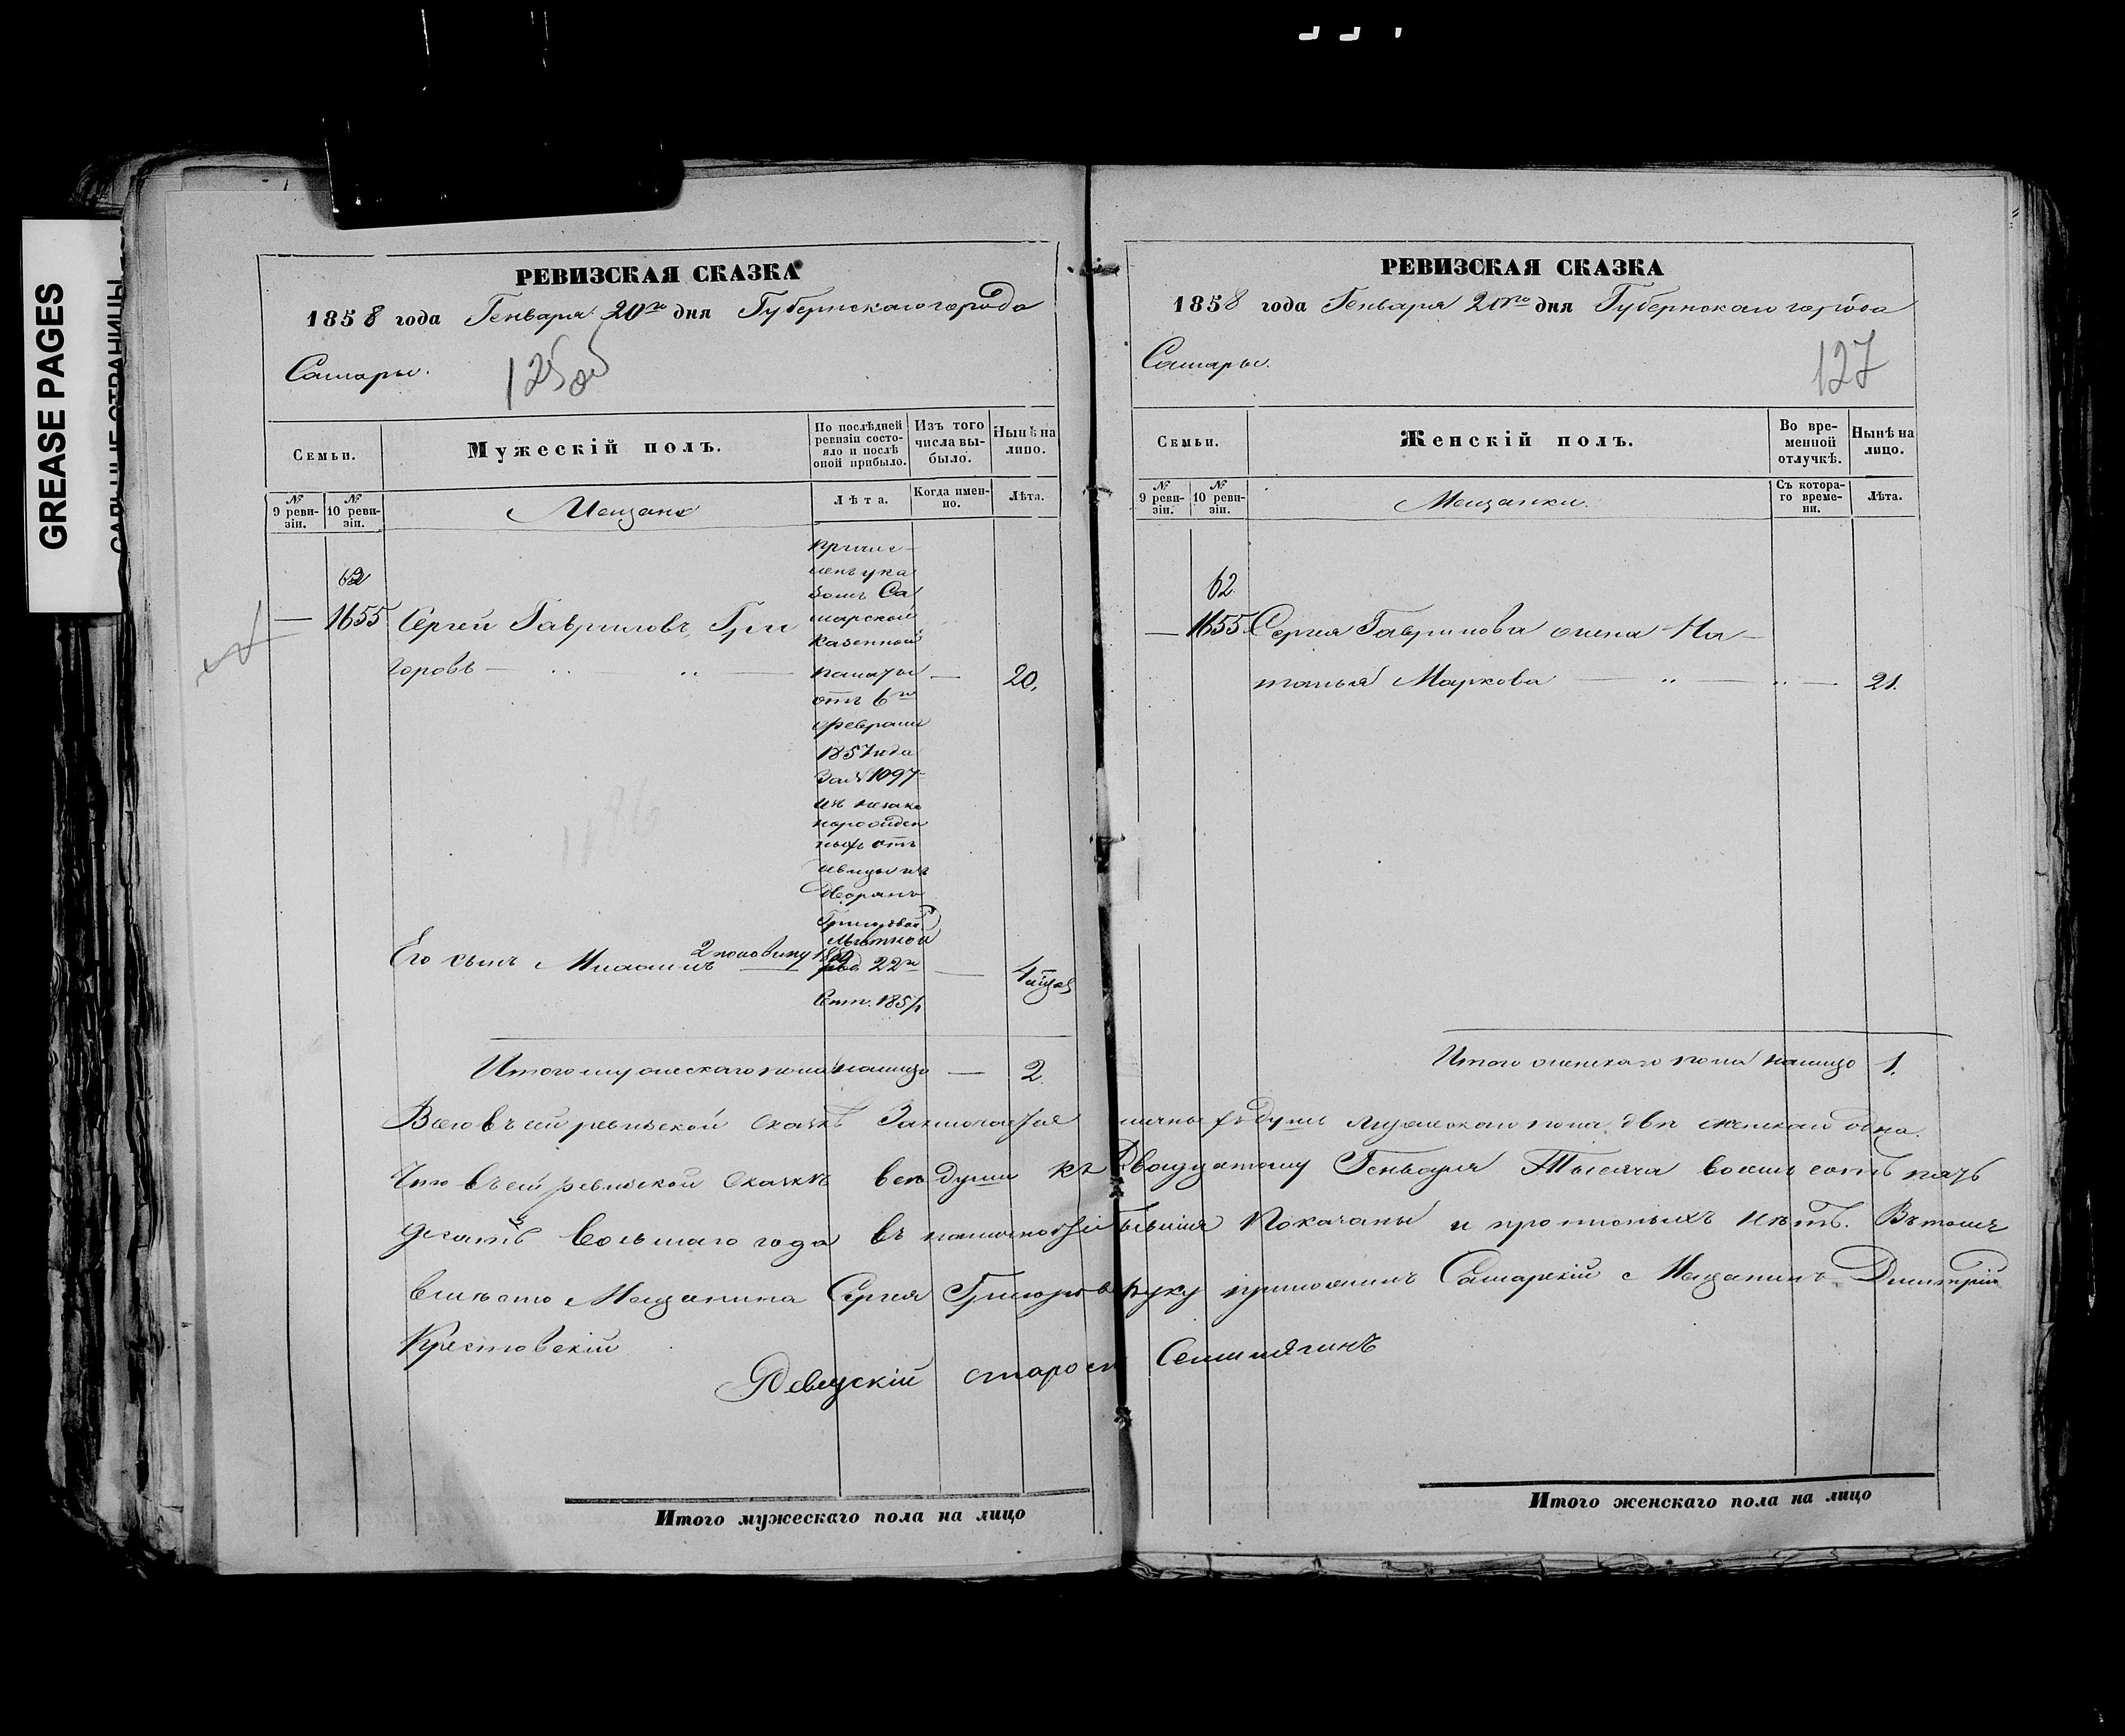 GREASE PAGES
РЕВИЗСКАЯ СКАЗКА
1858 года Генваря 20го дня Губернскаго города
Самары.
Семьи.
Мужескій полъ.
По послѣдней ревизіи состо-
яло и послѣ оной прибыло.
Изъ того числа вы-
было.
Нынѣ на лицо.
№ 9 реви-
зіи.
№ 10 реви-
зіи.
Мещане
Лѣта.
Когда имен-
но.
Лѣта.
62
— 1655 Сергей Гавриловъ Гри
горовъ — — 20.
причис-
ленъ ука
зомъ Са
марской
Казенной
палаты
отъ 6го
февраля
1857 года
за № 1097
изъ незако
норожден
ныхъ отъ
девицы изъ
Дворянъ
Григоровой
льготной
2 половину
Его сынъ Михаилъ — род 22го — 4 мѣсяц
Сент. 1857
Итого мужескаго пола налицо — 2.
РЕВИЗСКАЯ СКАЗКА
1858 года Генваря 20го дня Губернскаго города
Самары.
127
Семьи.
Женскій полъ.
Во вре-
менной
отлучкѣ.
Нынѣ на
лицо.
№ 9 реви-
зіи.
№ 10 реви-
зіи.
Мещанки.
Съ котора-
го време-
ни.
Лѣта.
62.
— 1655 Сергея Гаврилова жена На-
талья Маркова — — 21.
Итого женскаго пола налицо 1.
Всего въ сей ревизской сказкѣ Заключается наличныхъ душъ мужескаго пола двѣ женскаго одна.
Что въ сей ревизской сказкѣ все души къ Двадцатому Генваря Тысяча восемь сотъ пять
десятъ восьмаго года въ наличности бывшія Показаны и прописныхъ нѣтъ. Въ томъ
вмѣсто Мещанина Сергея Григорова руку приложилъ Самарскій Мещанинъ Димитрій
Крестовскій
староста
Итого мужескаго пола на лицо
Итого женскаго пола на лицо